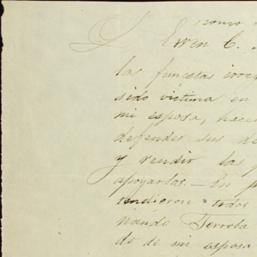 como
D. Ewen C.
las funestas
sido victima en
mi esposa, hacer
defender sus de
y rendir las
apoyarlos. — En p
rendieron todos
nando
do de mi esposa